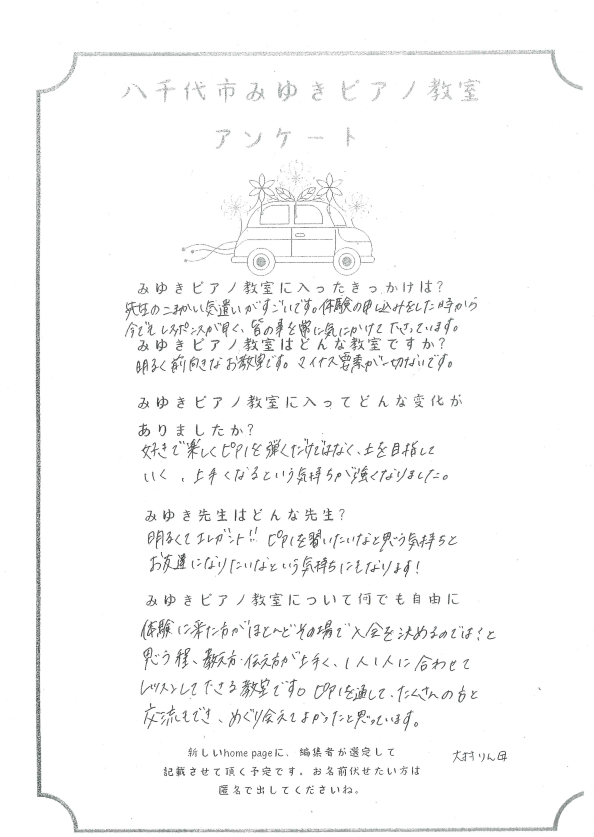 八千代市みゆきピアノ教室
アンケート
みゆきピアノ教室に入ったきっかけは?
先生のこまかい気遣いがすごいです。体験の申し込みをした時から
今でもレスポンスが早く、皆の事を常に気にかけて下さっています。
みゆきピアノ教室はどんな教室ですか?
明るく前向きなお教室です。マイナス要素が一切ないです。
みゆきピアノ教室に入ってどんな変化が
ありましたか?
好きで楽しくピアノを弾くだけではなく、上を目指して
いく、上手くなるという気持ちが強くなりました。
みゆき先生はどんな先生?
明るくてエレガント!! ピアノを習いたいなと思う気持ちと
お友達になりたいなという気持ちにもなります!
みゆきピアノ教室について何でも自由に
体験に来た方がほとんどその場で入会を決めるのでは?と
思う程、教え方・伝え方が上手く、1人1人に合わせて
レッスンして下さる教室です。ピアノを通して、たくさんの方と
交流もでき、めぐり会えてよかったと思っています。
新しいhome pageに、編集者が選定して
記載させて頂く予定です。お名前伏せたい方は
匿名で出してくださいね。
りん母